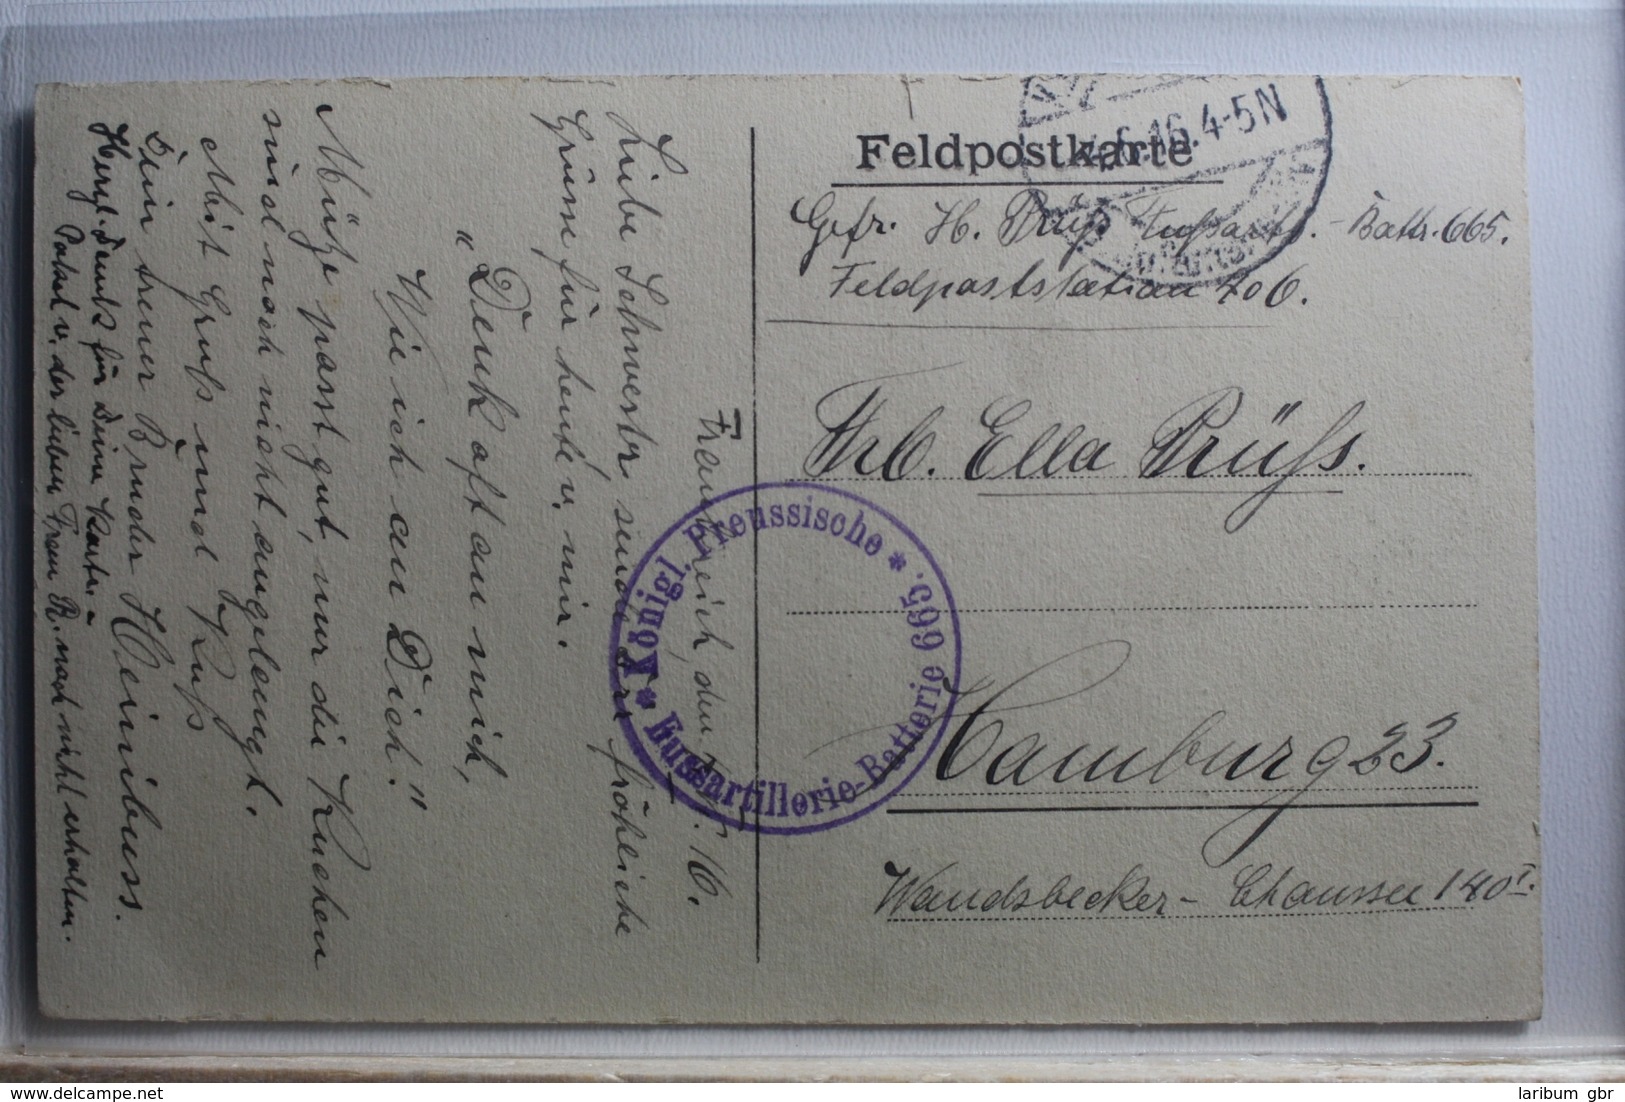 Feldpostkarte
16. 4-5N
Gefr. H. Prüß Fussart. - Battr. 665.
Feldpoststation 406.
Frl. Ella Prüss.
Hamburg 23.
Wandsbecker - Chaussee 140 I.
* Königl. Preussische *
Fussartillerie-Batterie 665.
Frankreich, den 16.
Liebe Schwester, sende Dir fröhliche
Grüsse für heute v. mir.
"Denk oft an mich,
Wie ich an Dich."
Mütze passt gut, nur die Kuchen
sind noch nicht angelangt.
Mit Gruß und Kuß
Dein treuer Bruder Heinibuss.
Herzl. Dank für Deine Karte. -
Paket v. der lieben Frau R. noch nicht erhalten.
laribum gbr